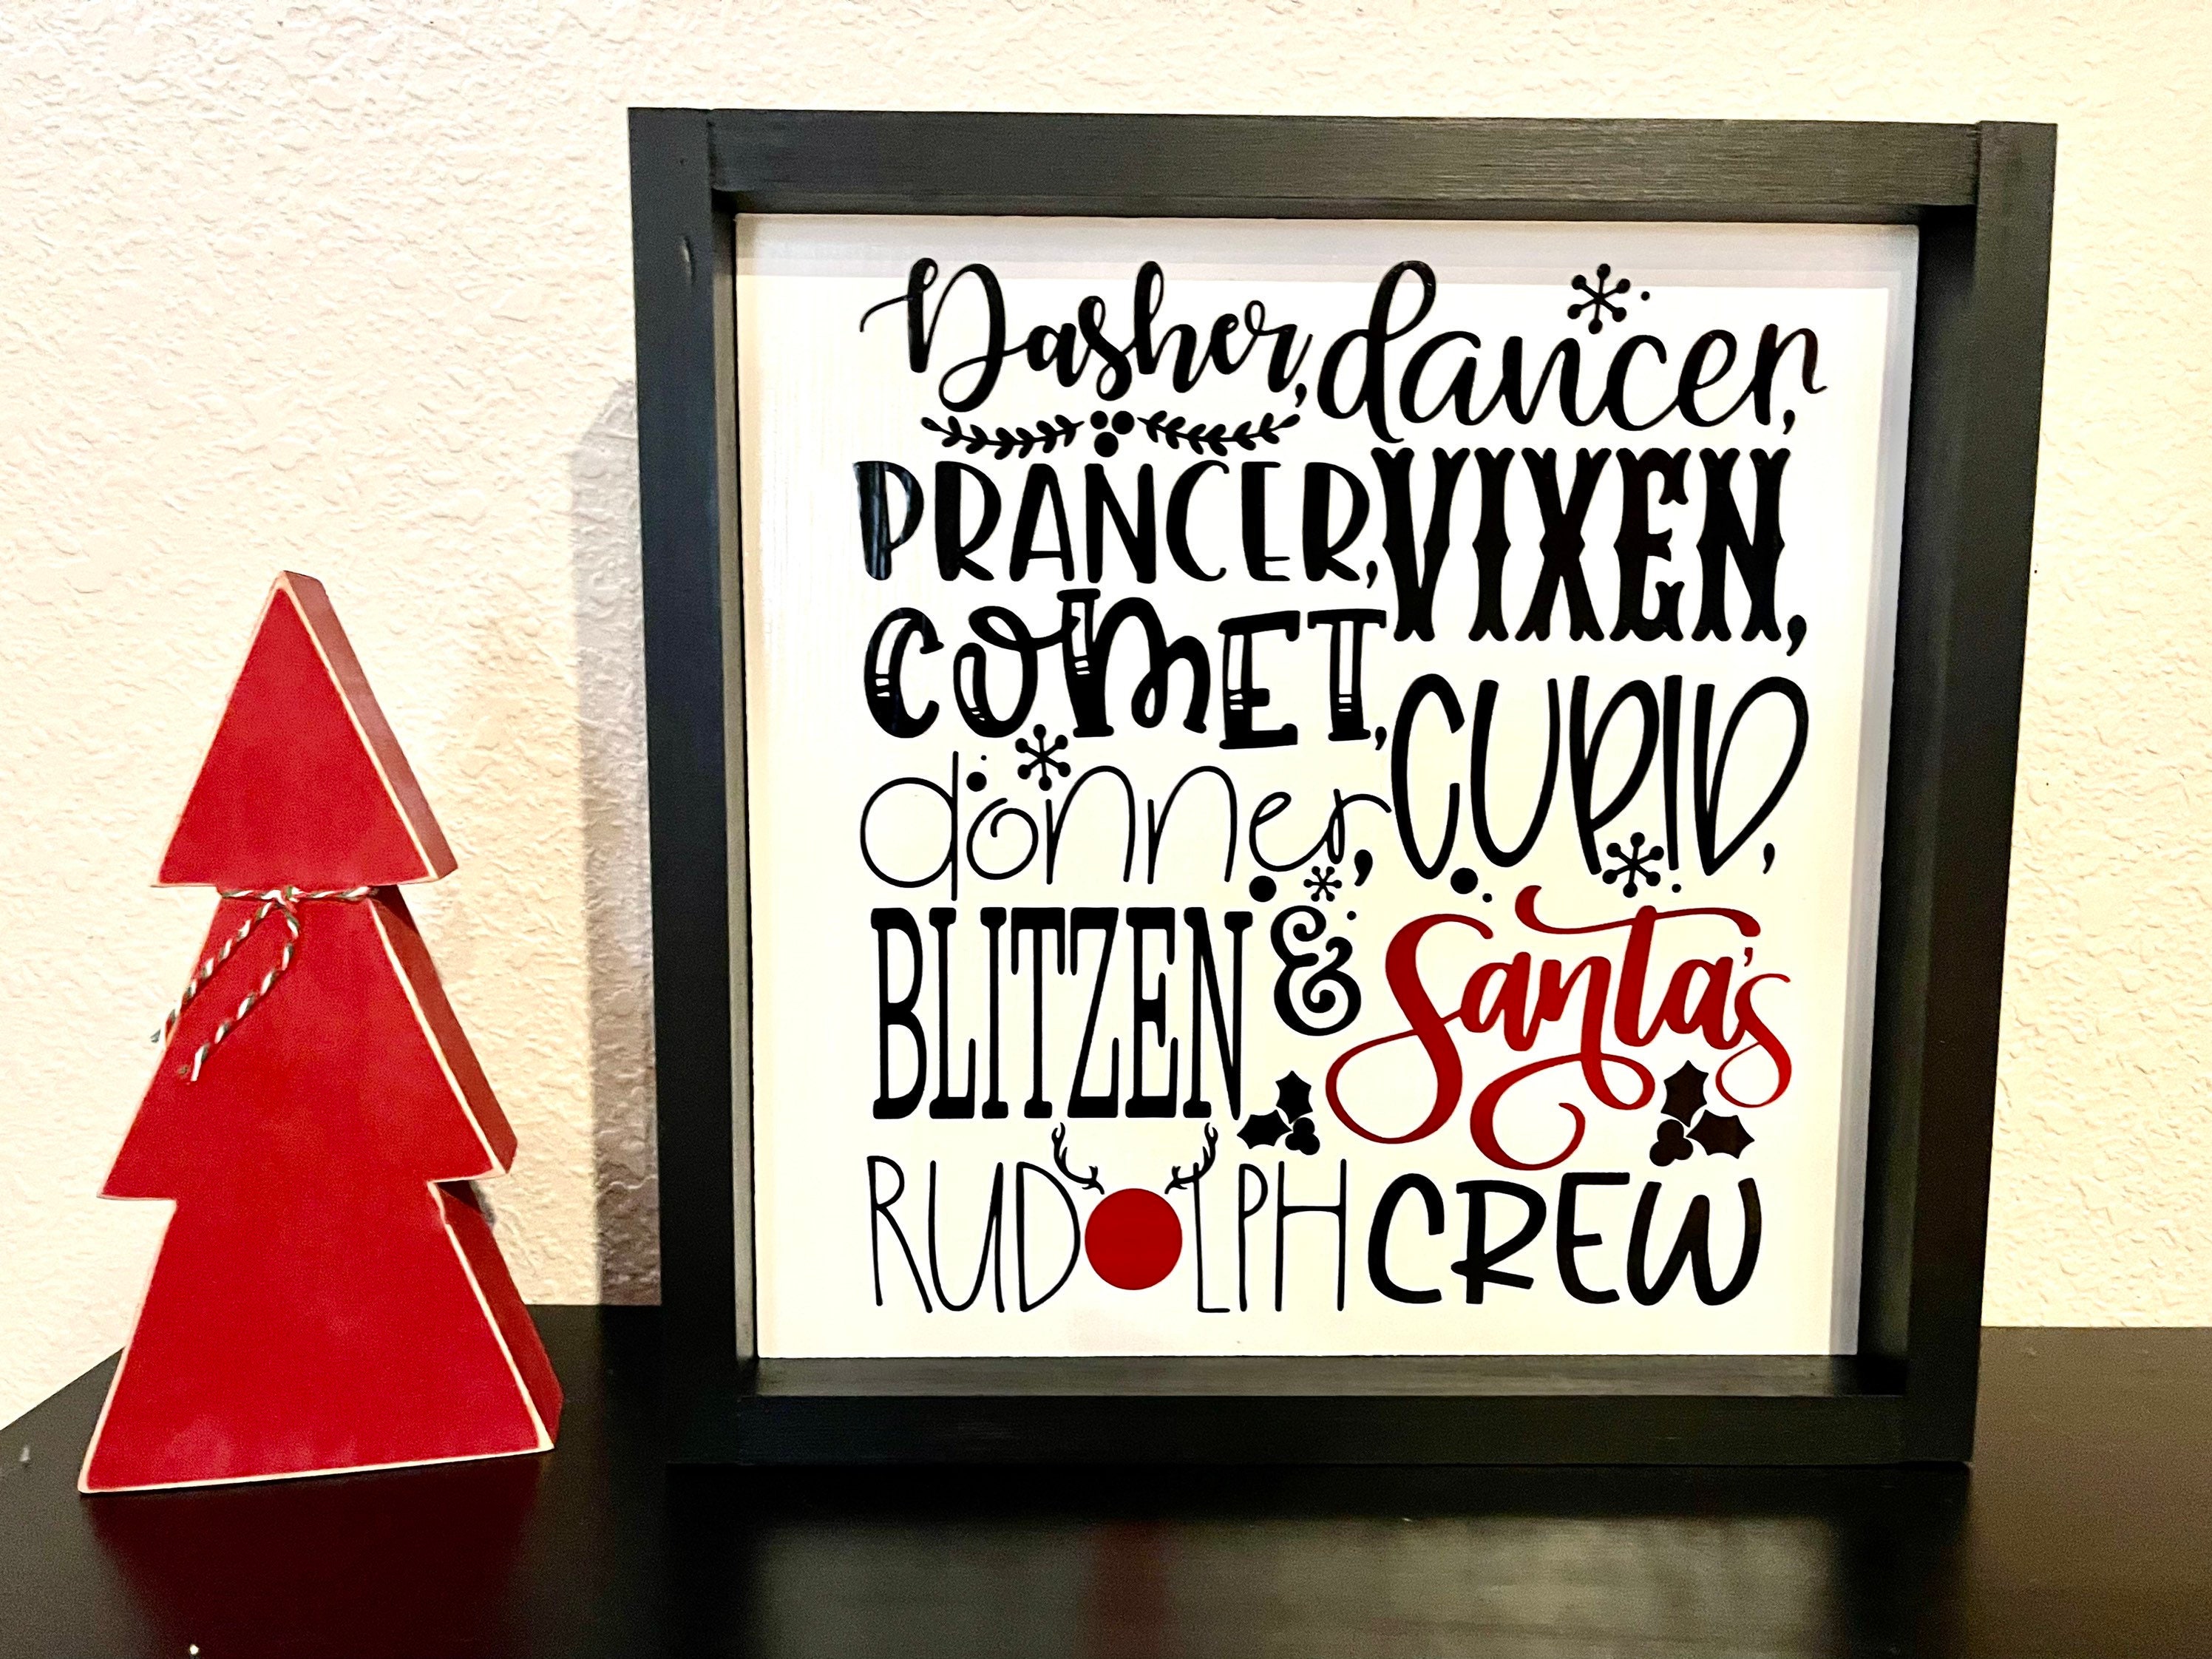 Dasher, dancer,
PRANCER, VIXEN,
COMET, CUPID,
donner,
BLITZEN & Santa's
RUDOLPH CREW